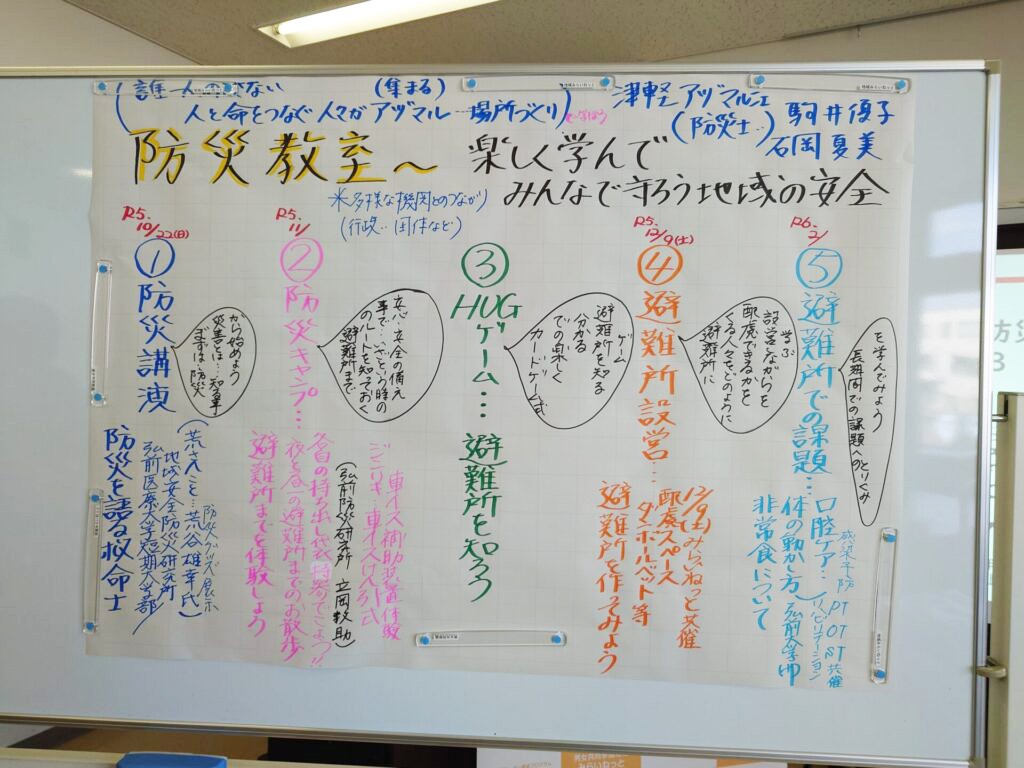 誰一人のこさない
人と命をつなぐ人々がアヅマル…場所づくり
(集まる)
津軽アヅマルシェ
(防災士‥)
駒井優子
石岡夏美
防災教室～
楽しく学んで
みんなで守ろう地域の安全
*多様な機関とのつながり
(行政‥団体など)
R5.
10/22(日)
①防災講演
災害とは…知る事
から始めよう
まずは防災
防災を語る救命士
弘前医療大学短期大学部
地域安全防災研究所
(荒さんこと‥荒谷雄幸氏)
防災グッズ展示
R5.
11/
②防災キャンプ…
安心・安全の備え
事で‥いざという時の
のルートを知っておく
避難所まで
各自の持ち出し袋持参でしょう!!
夜を昼の避難所までのお散歩
避難所までを体験しよう
(弘前防災研究所 立岡救助)
車イス補助装置体験
ジンリキ 車イスけん引式
③HUGゲーム…避難所を知ろう
ゲーム
避難所を知る
分かる
での楽しく
カードゲーム式
R5.
12/9(土)
④避難所設営…
学ぶ
設営しながらを
配慮できるかを
くる人々をどのように
避難所に
12/9(土)みらいねっと共催
配慮スペース
ダンボールベット等
避難所を作ってみよう
R6.
2/
⑤避難所での課題…
を学んでみよう
長期間での課題へのとりくみ
口腔ケア‥
体の動かし方
非常食について
リハビリテーション
感染予防 PT OT ST 共催